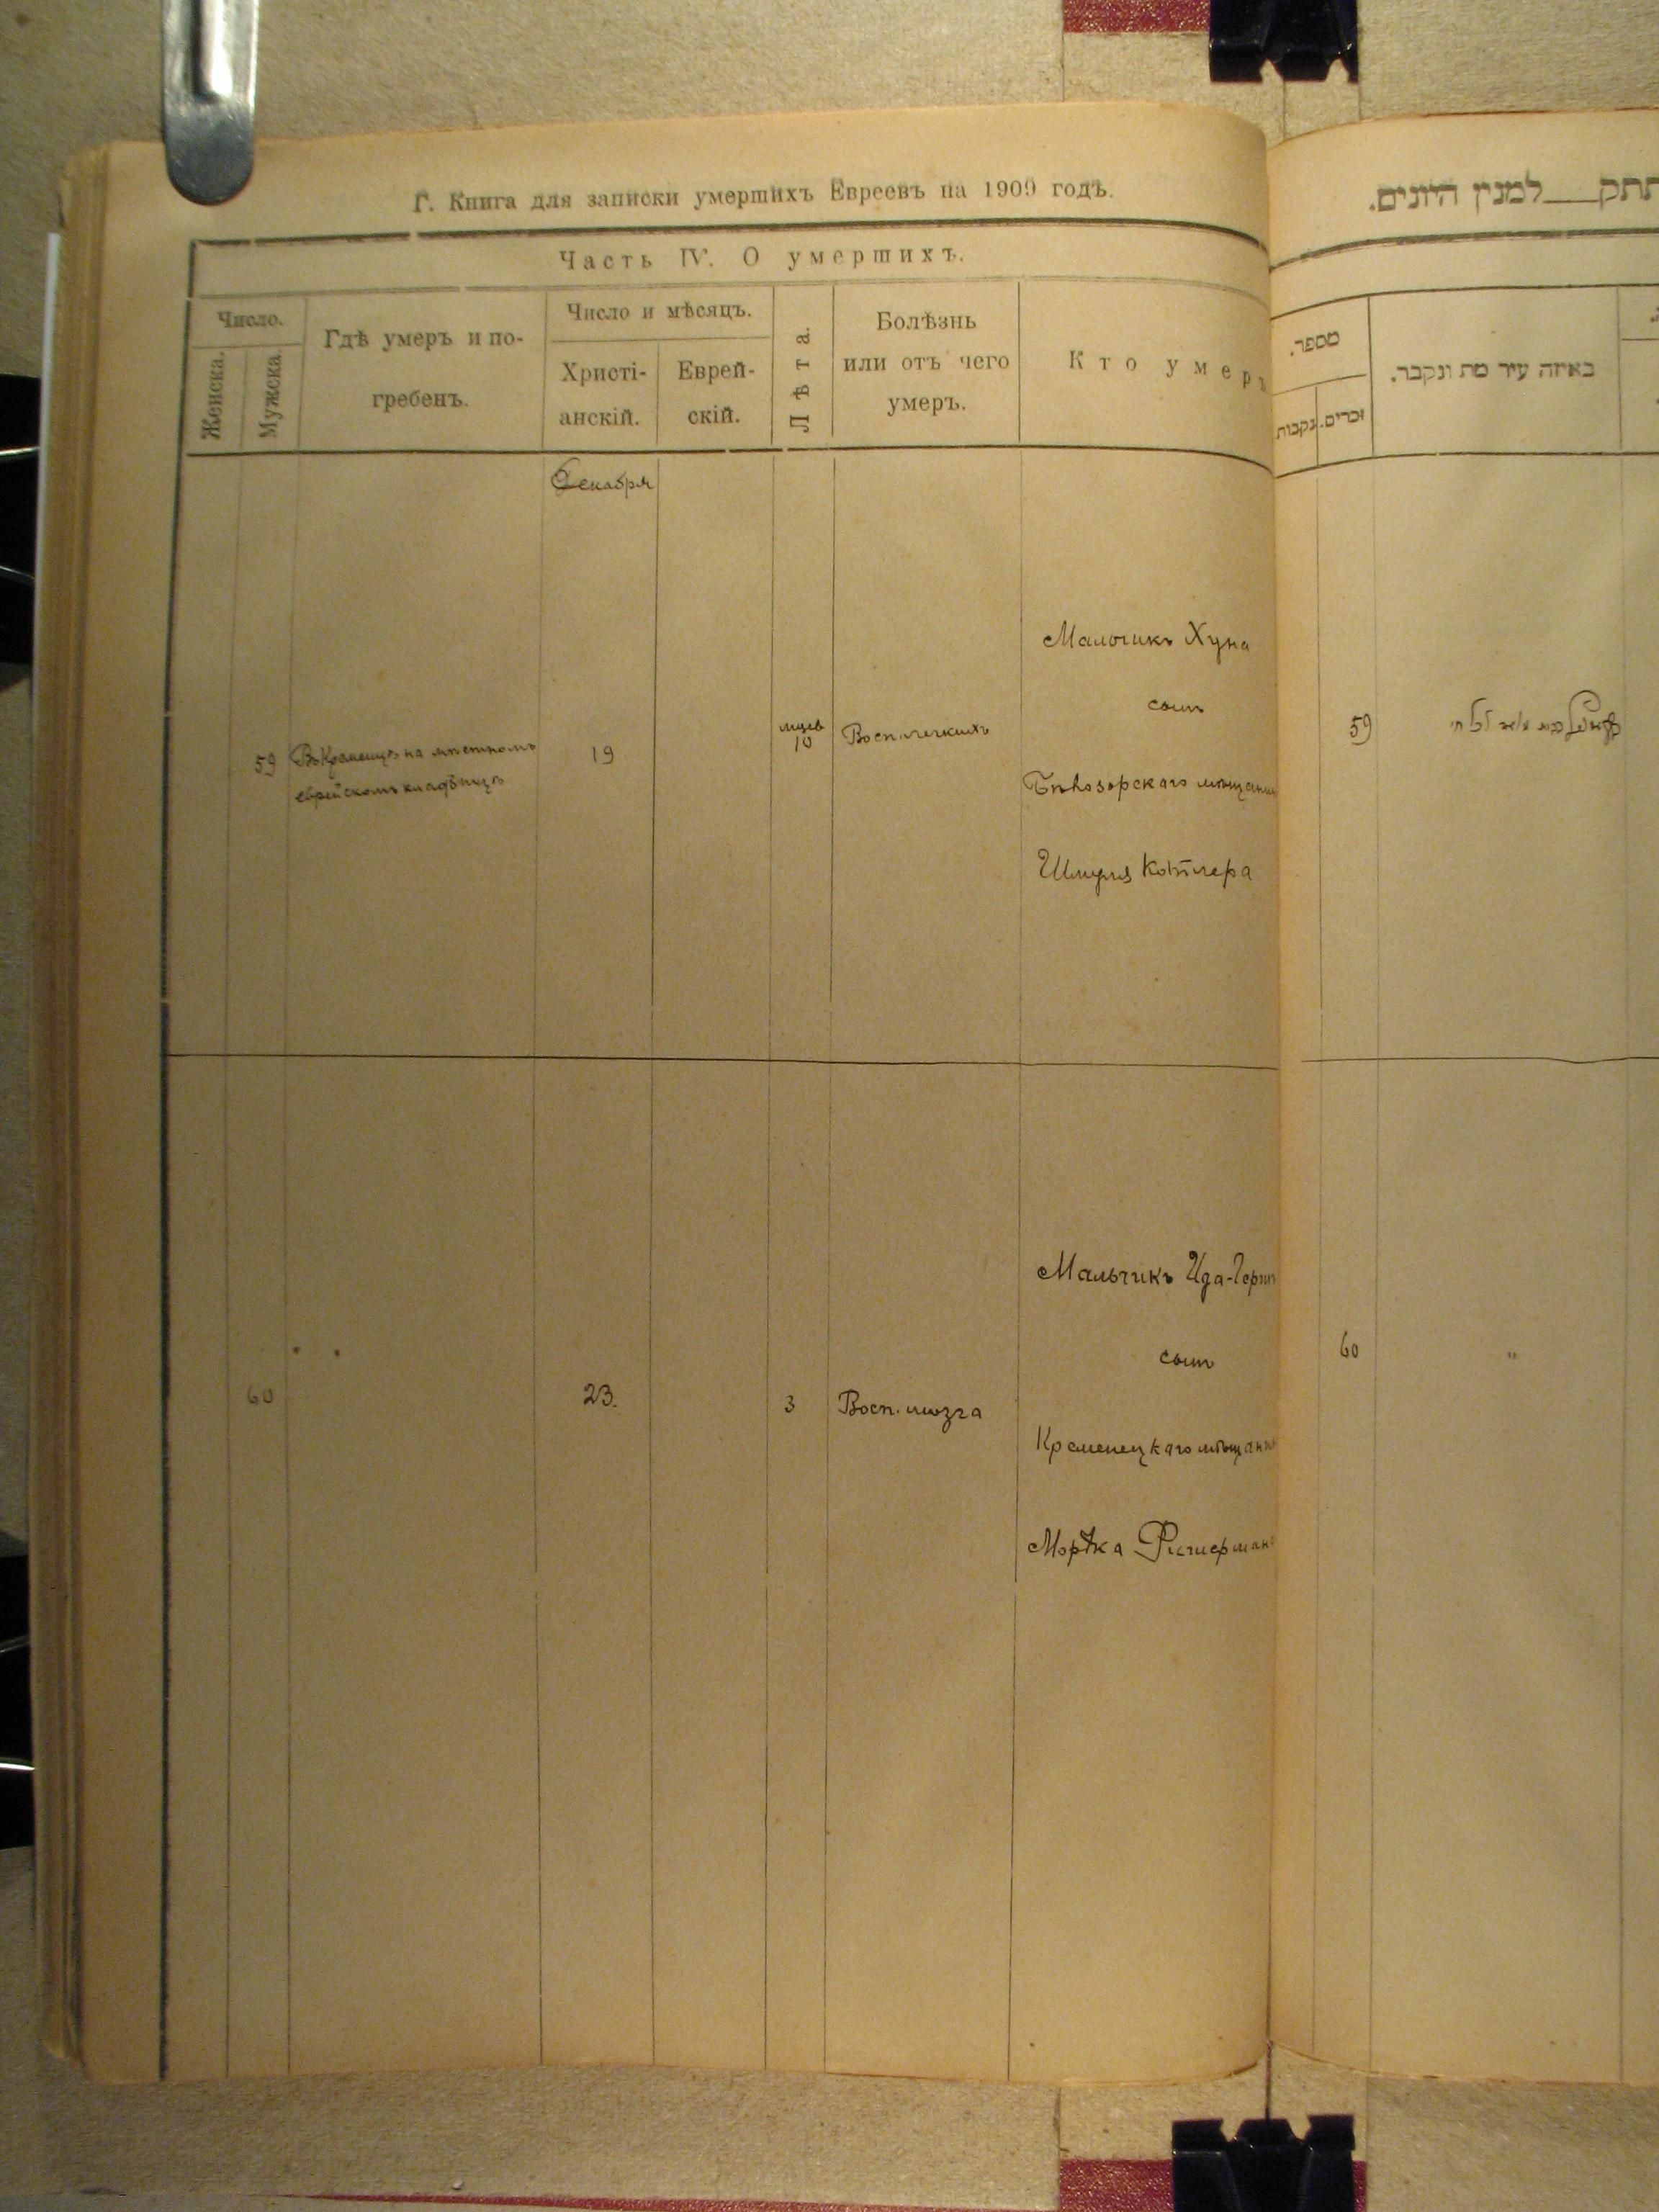 Г. Книга для записки умершихъ Евреевъ на 1909 годъ.
Часть IV. О умершихъ.
Число.
Женска.
Мужска.
Гдѣ умеръ и по-
гребенъ.
Число и мѣсяцъ.
Христі-
анскій.
Еврей-
скій.
Лѣта.
Болѣзнь
или отъ чего
умеръ.
Кто умеръ
Декабря
59
Въ Кременцѣ на мѣстномъ
еврейскомъ кладбищѣ
19
мцевъ
10
Восп. легкихъ
Мальчикъ Хуна
сынъ
Бѣлозорскаго мѣщанин
Шмуля Котлера
60
" "
23.
3
Восп. мозга
Мальчикъ Ида-Герш
сынъ
Кременецкаго мѣщанин
Мордка
למנין היונים.
מספר.
נקבות
זכרים.
באיזה עיר מת ונקבר.
59
60
"